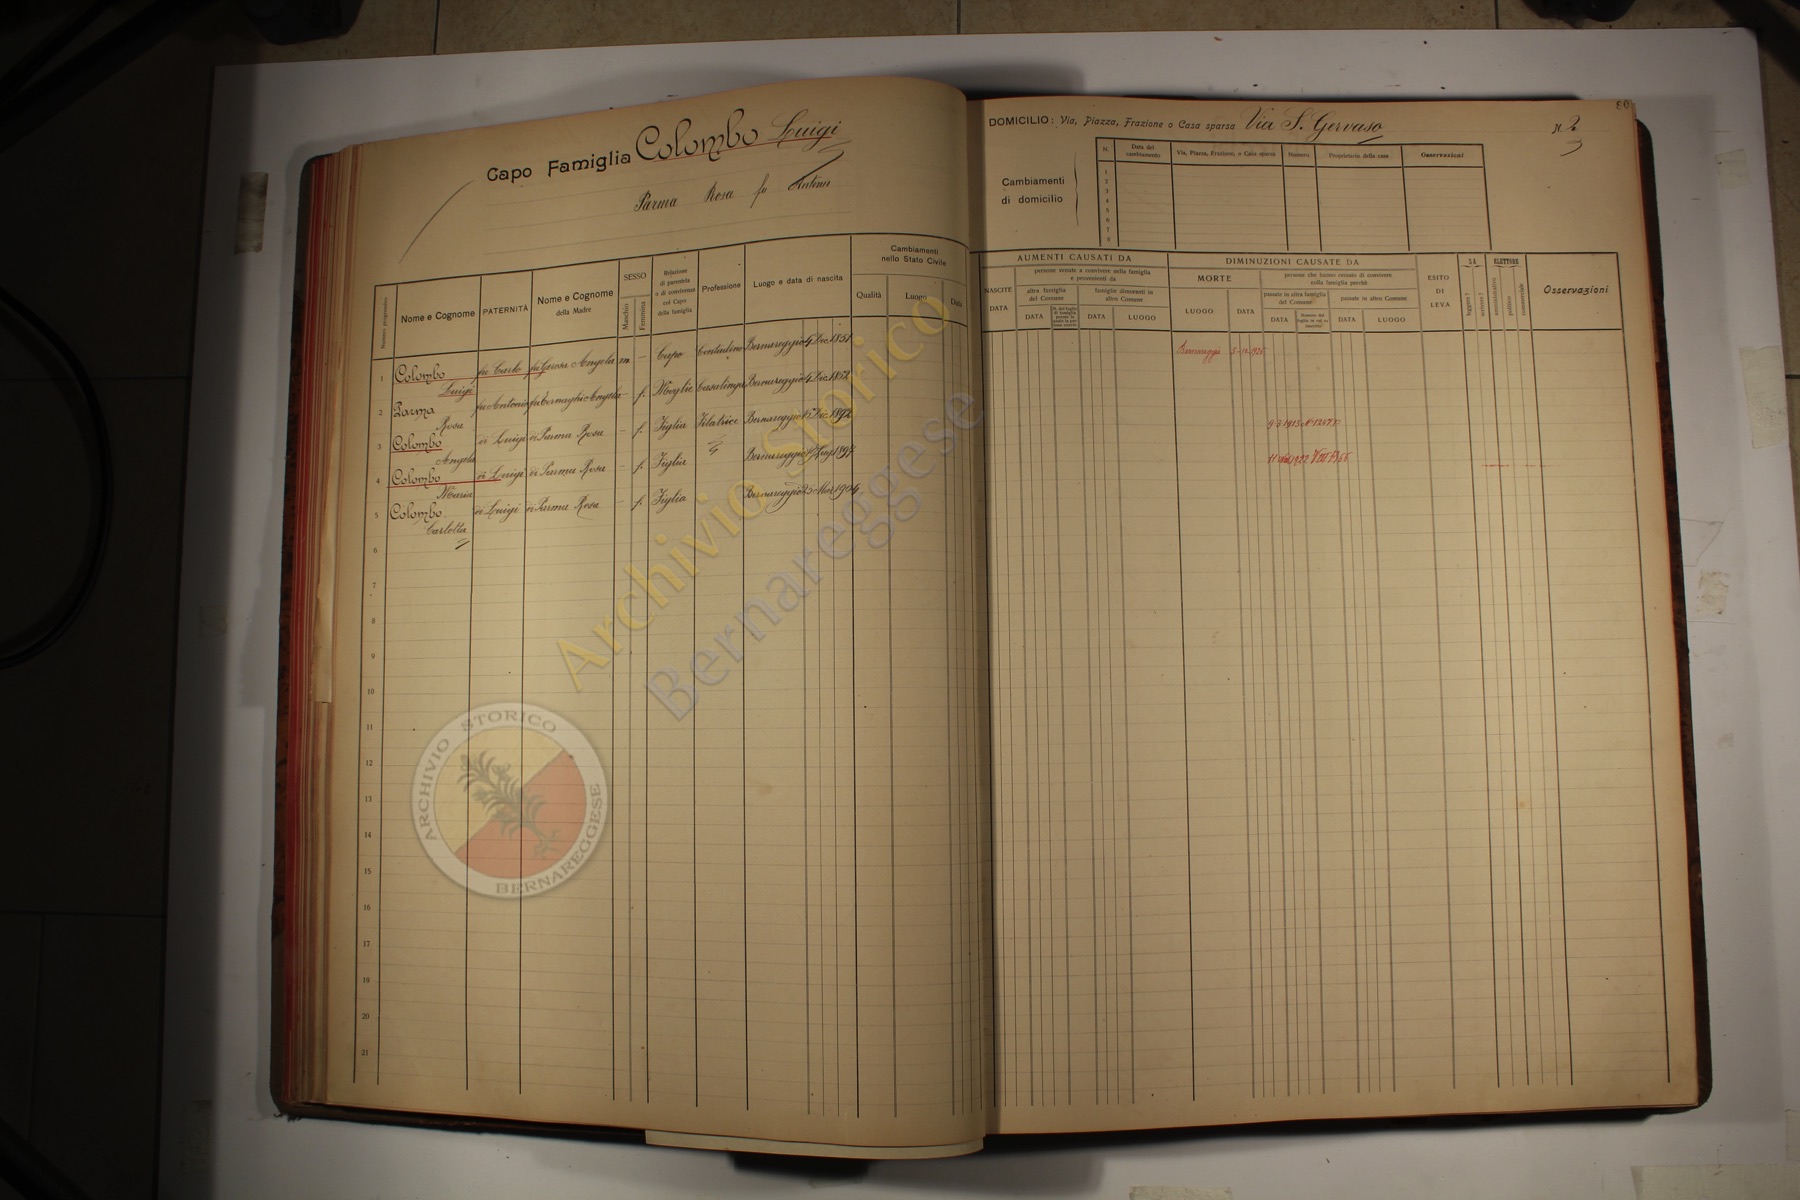 Capo Famiglia Colombo Luigi
Parma Rosa fu Antonio
Numero progressivo
Nome e Cognome
PATERNITÀ
Nome e Cognome
della Madre
SESSO
Maschio
Femmina
Relazione
di parentela
o di convivenza
col Capo
della famiglia
Professione
Luogo e data di nascita
Cambiamenti
nello Stato Civile
Qualità
Luogo
Data
1 Colombo Luigi fu Carlo fu Angela m — Capo Contadino Bernareggio 4 Dic. 1851
2 Parma Rosa fu Antonio fu Bernaghi Angela — f. Moglie Casalinga Bernareggio 4 Dic. 1852
3 Colombo Angela di Luigi di Parma Rosa — f. Figlia Filatrice Bernareggio 15 Dic. 1892
4 Colombo Maria di Luigi di Parma Rosa — f. Figlia Bernareggio Lug. 1897
5 Colombo Carlotta di Luigi di Parma Rosa — f. Figlia Bernareggio 25 Mar. 1904
6
7
8
9
10
11
12
13
14
15
16
17
18
19
20
21
80
DOMICILIO: Via, Piazza, Frazione o Casa sparsa Via S. Gervaso N 2
Cambiamenti
di domicilio
N.
Data del
cambiamento
Via, Piazza, Frazione, o Casa sparsa
Numero
Proprietario della casa
Osservazioni
1
2
3
4
5
6
7
8
AUMENTI CAUSATI DA
NASCITE
DATA
persone venute a convivere nella famiglia
e provenienti da
altra famiglia
del Comune
DATA
famiglie dimoranti in
altro Comune
DATA
LUOGO
DIMINUZIONI CAUSATE DA
MORTE
LUOGO
DATA
persone che hanno cessato di convivere
colla famiglia perchè
passate in altra famiglia
del Comune
DATA
passate in altro Comune
DATA
LUOGO
ESITO
DI
LEVA
SA
leggere ?
scrivere ?
ELETTORE
amministrativo
politico
commerciale
Osservazioni
Bernareggio
Archivio Storico
Bernareggese
ARCHIVIO STORICO
BERNAREGGESE